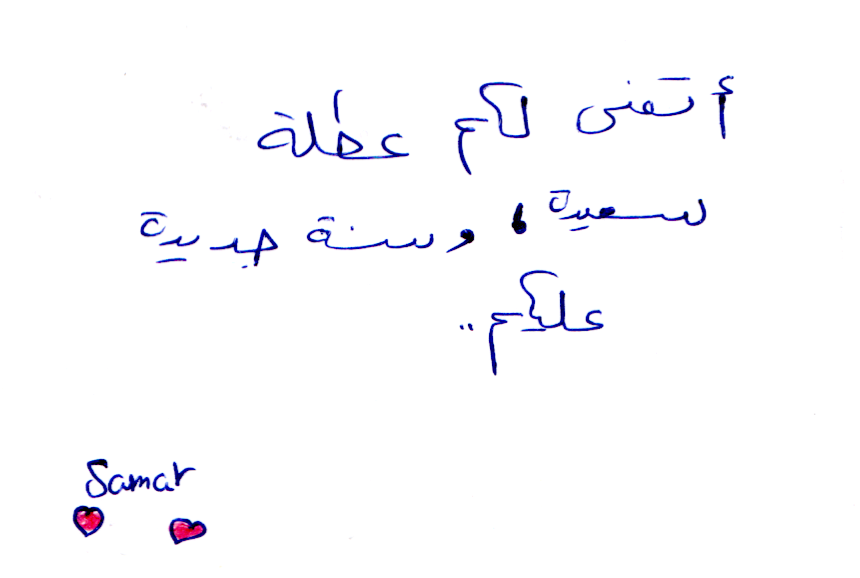 أتمنى لكم عطلة
سعيدة، وسنة جديدة
عليكم..
Samar